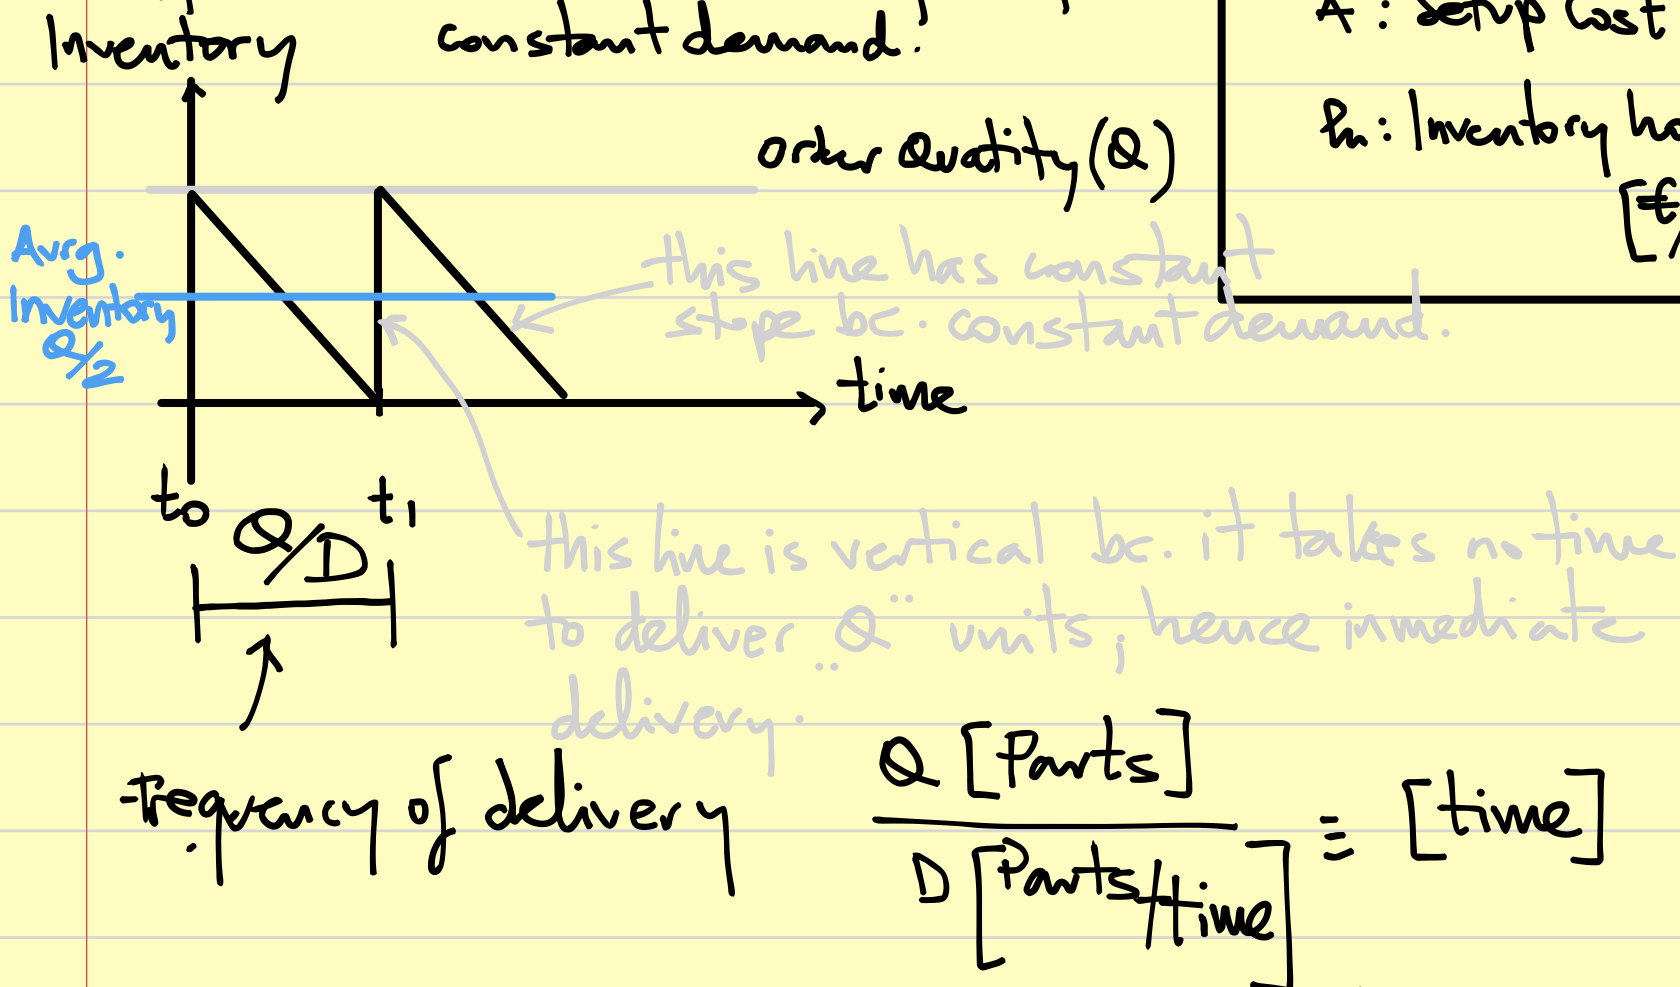 Inventory
constant demand.
A : Setup Cost
h : Inventory ho
[€/
Order Quantity (Q)
Avrg.
Inventory
Q/2
this line has constant
slope bc. constant demand.
time
t0
t1
Q/D
this line is vertical bc. it takes no time
to deliver "Q" units, hence immediate
delivery.
Frequency of delivery
Q [Parts]
D [Parts/time]
≡ [time]